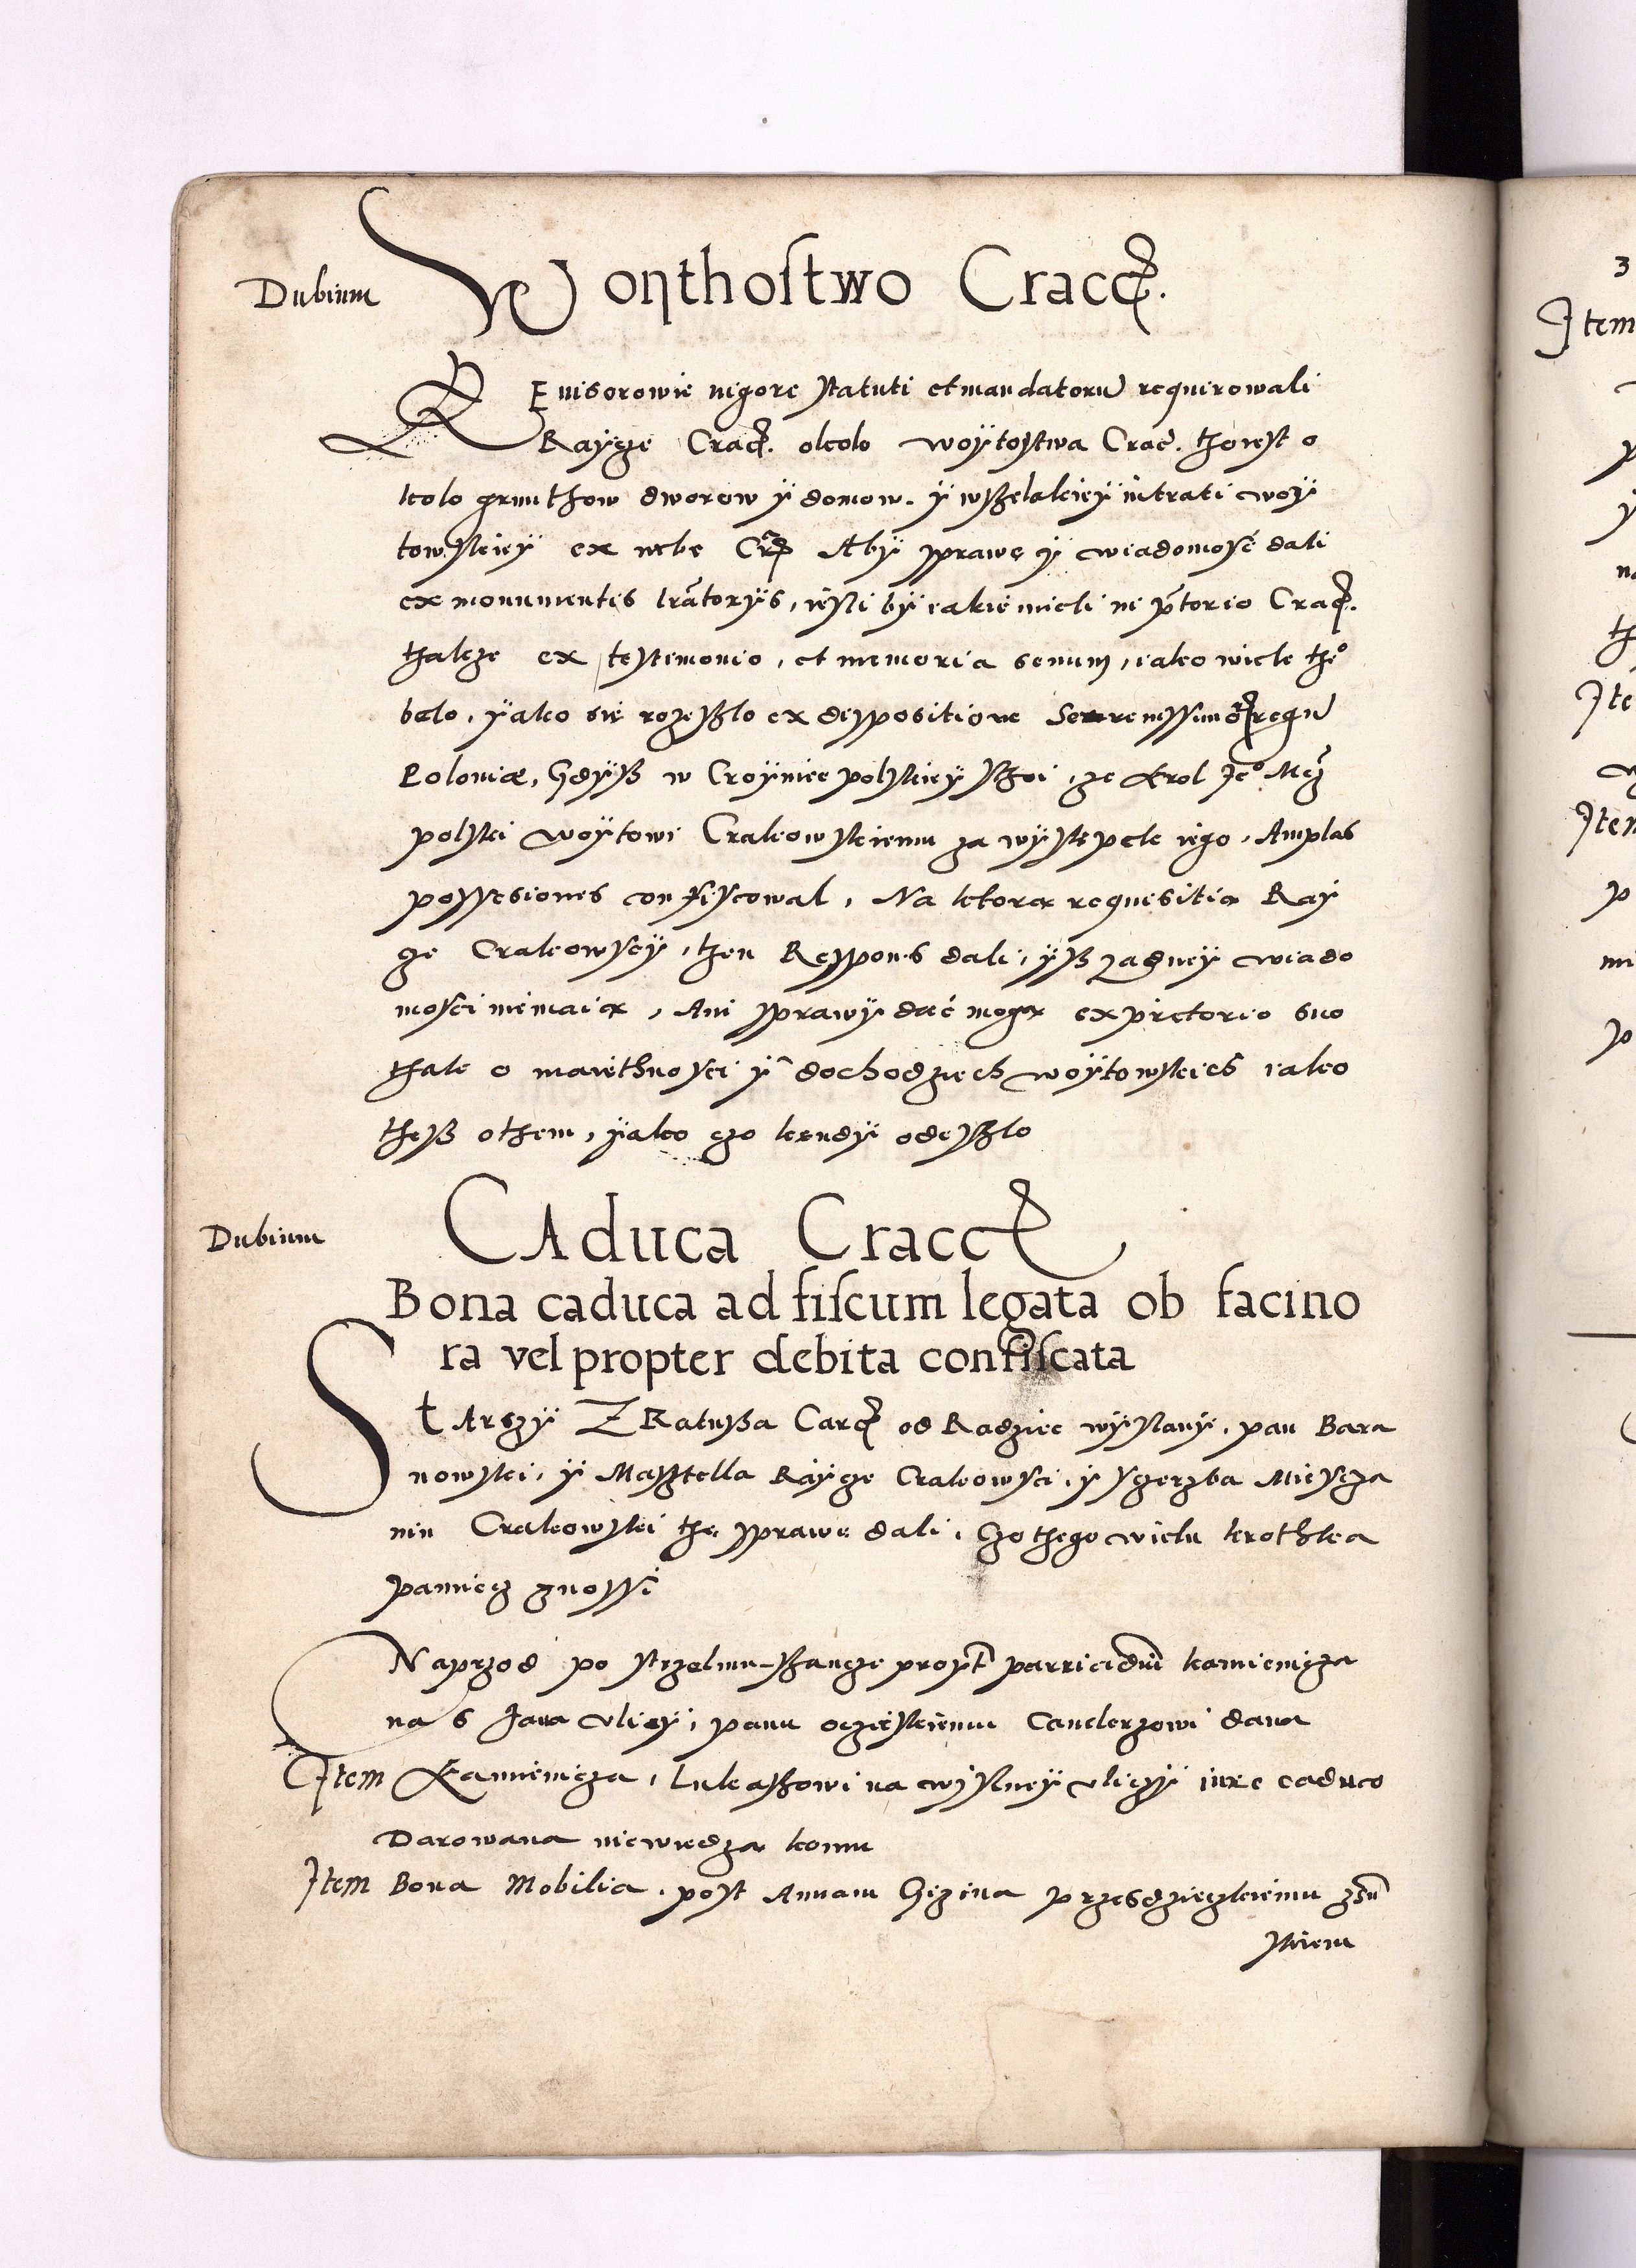 Dubium
Woythostwo Cracoͬ.
REvisorowie vigore statuti et mandatorū requirowali
Raycze Cracͬ. okolo woÿtostwa Crac. tho iest o
kolo grunthow dworow ÿ domow. ÿ wszelakieÿ intrati woÿ
towskieÿ ex vrbe Crac Abÿ sprawę ÿ wiadomość dali
ex monumentis lrātorÿs, iesli bÿ iakie mieli in p̄torio Cracͬ.
thakze ex testimonio, et memoria senum, iako wiele the͏ͦ
belo, ÿako sie rozeszlo ex dispositione Serenissimoͬ regū
Poloniæ, Gdÿsz w Croÿnice polskieÿ sthoi, ze Krol Jeͦ Mcz
polski woÿtowi Crakowskiemu za wÿstępek iego, Amplas
possesiones confiscowal, Na ktorą requisitią Raÿ
cze Crakowscÿ, then Respons dali, ÿsz zadneÿ wiado
mosci niemaią, Ani sprawÿ dać mogą ex prætorio suo
thak o maiethnosci ÿ dochodziech woÿtowskich iako
thesz othem, ÿako czo kendÿ odeszlo
Dubium
CAduca Cracoͬ
Bona caduca ad fiscum legata ob facino
ra vel propter debita confiscata
STArszÿ Z Ratusza Carcͬ od Radziec wÿslanÿ, pan Bara
nowski, ÿ Masztella Raÿcze Crakowsci, ÿ sczerzba Miescza
nin Crakowski the sprawe dali, Czo thego wielu krothka
pamiecz znossi
Naprzod po strzelmuszancze propt̄ parricidiū kamienicza
na S Jana vlicÿ, panu ocziskiemu Canclerzowi dana
Item Kamienicza, Lukaszowi na wislneÿ vliczÿ iure caduco
Darowana niewiedza komu
Item Bona Mobilia, post Annam Gizina przesdzieczkiemu
skiem
3
Item